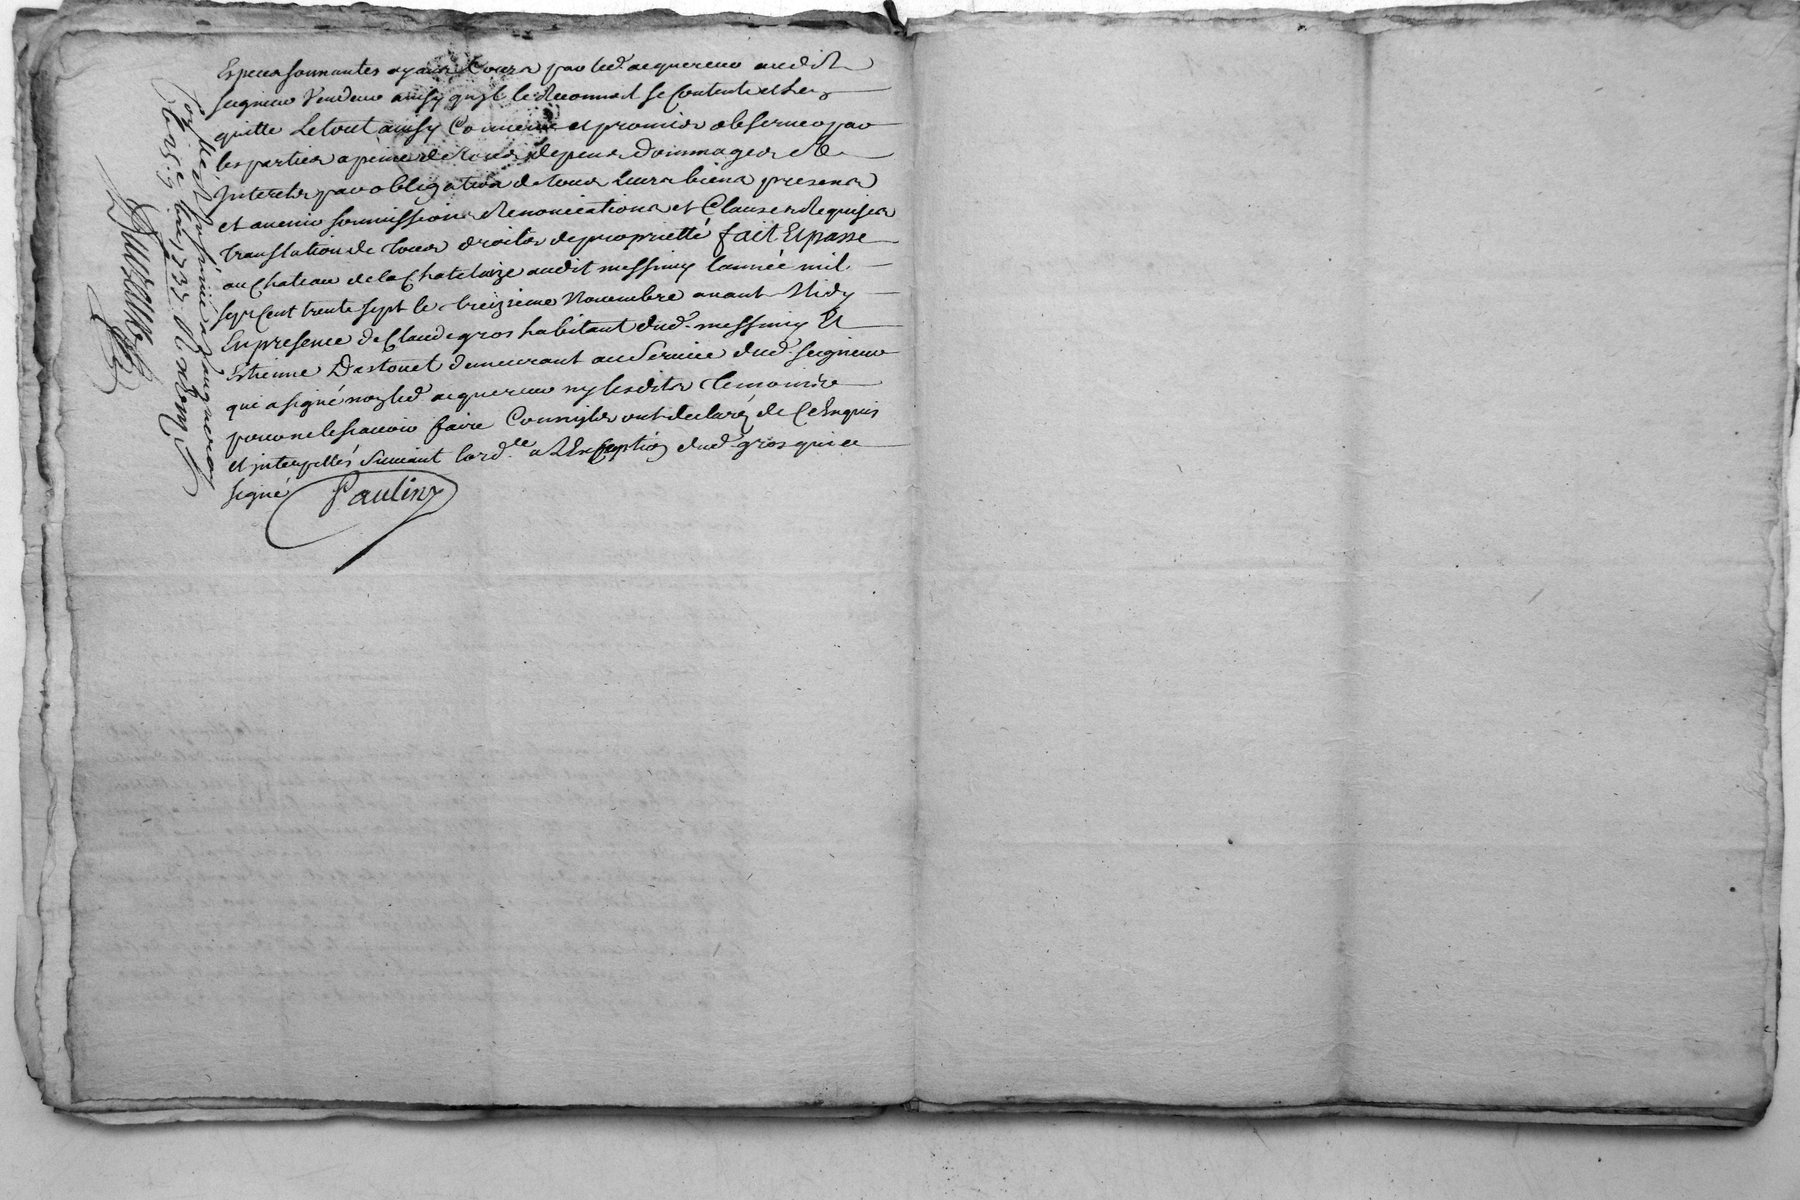 Especes sonnantes ayant Cours par led. acquereur audit
seigneur Vendeur ainsy qu'il le Reconnoit se Contente et Len
quitte Letout ainsy Convenu et promis observer par
les parties a peine de tous depens dommages et
Interets par obligation de tous leurs biens presens
et avenir soumissions Renonciations et Clauses Requises
translation de tous droits de proprietté fait Et passé
au Chateau de la Chatelaize audit messimy l'année mil
sept Cent trente sept le treizieme Novembre avant Midy
En presence de Claude gros habitant dud. messimy Et
Estienne Dastouet demeurant au service dud. seigneur
qui a signé non led. acquereur ny lesdits temoins
pour ne le sçavoir faire Comm'ils ont declaréz de Ce Enquis
et interpellés suivant l'ord.ce a L'Exception dud. gros qui a
signé Paulin
1737